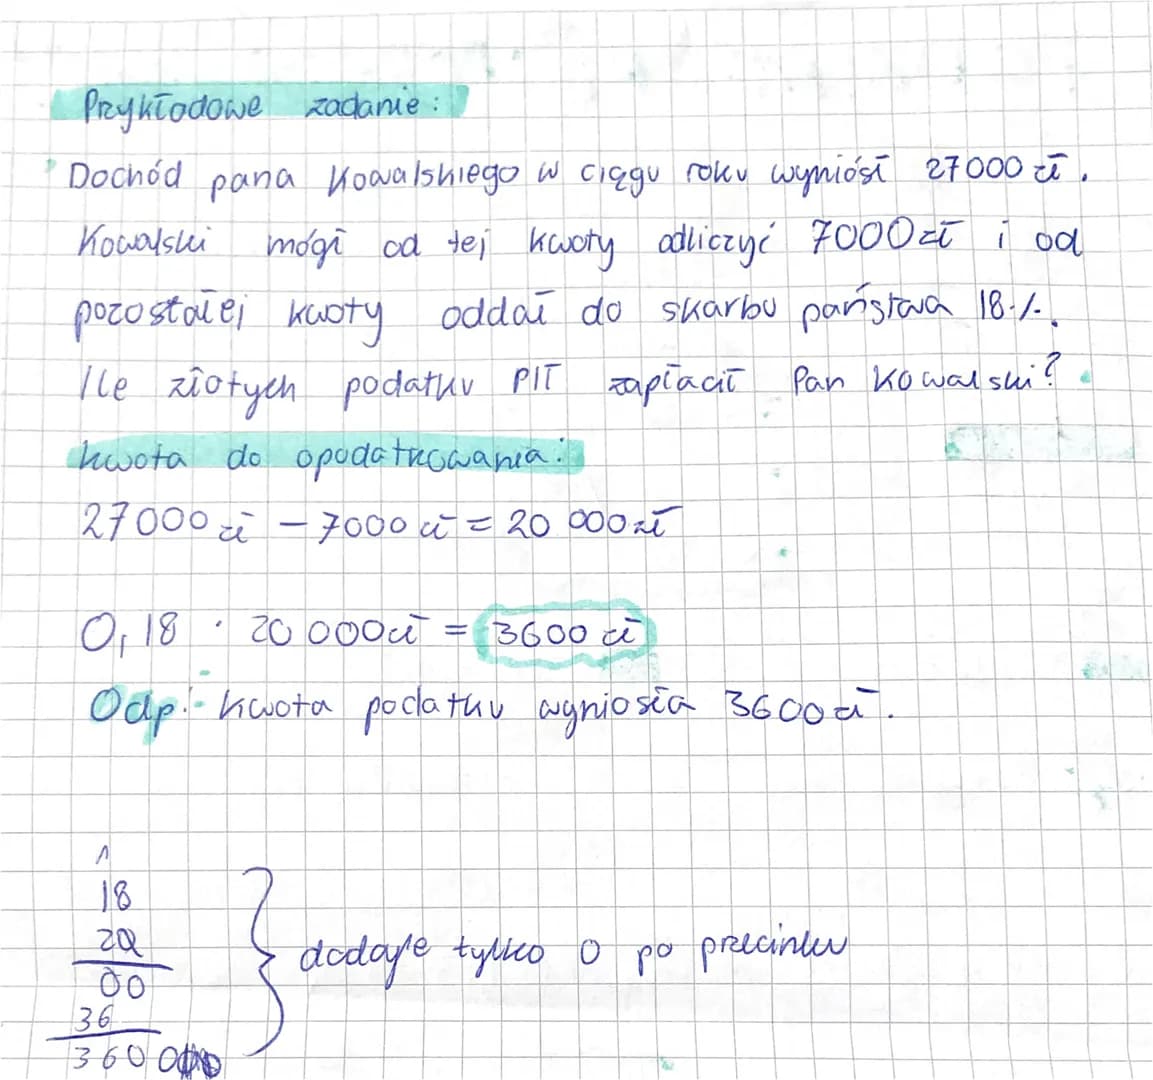 Przykładowe zadanie:
Dochód pana Kowalskiego w ciągu roku wyniósł 27000 zł.
Kowalski mógł od tej kwoty odliczyć 7000 zł i od
pozostałej kwoty oddał do skarbu państwa 18%.
Ile złotych podatku PIT zapłacił Pan Kowalski?
kwota do opodatkowania:
27000 zł - 7000 zł = 20 000 zł
0,18 · 20 000 zł = 3600 zł
Odp: kwota podatku wyniosła 3600 zł.
1
18
20
00
36
360 0
dodaje tylko 0 po przecinku